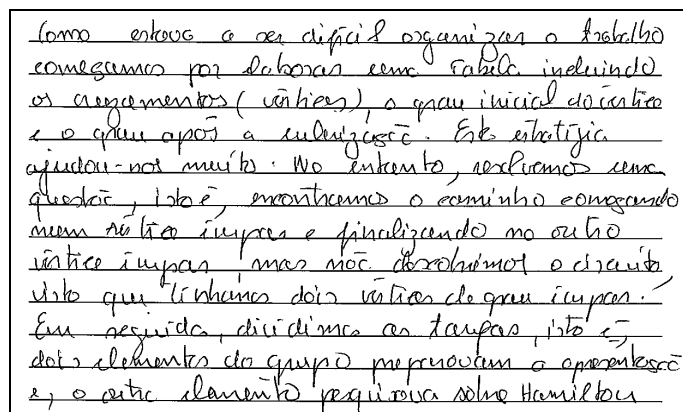 Como estava a ser difícil organizar o trabalho
começamos por elaborar uma tabela incluindo
os cruzamentos (vértices), o grau inicial do vértice
e o grau após a eulerização. Esta estratégia
ajudou-nos muito. No entanto, resolvemos uma
questão, isto é, encontramos o caminho começando
num vértice ímpar e finalizando no outro
vértice ímpar mas não descobrimos o circuito
visto que tínhamos dois vértices de grau ímpar.
Em seguida, dividimos as tarefas, isto é,
dois elementos do grupo preparavam a apresentação
e, o outro elemento pesquisava sobre Hamilton